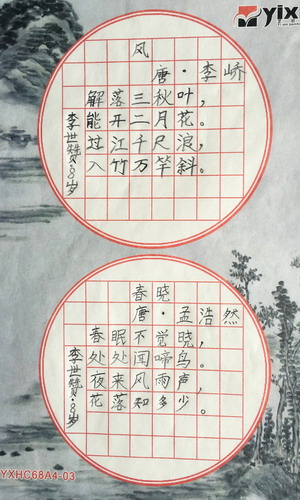 yix
风
唐·李峤
解落三秋叶，
能开二月花。
过江千尺浪，
入竹万竿斜。
李世 ·8岁
春晓
唐·孟浩然
春眠不觉晓，
处处闻啼鸟。
夜来风雨声，
花落知多少。
李世 ·8岁
YXHC68A4-03